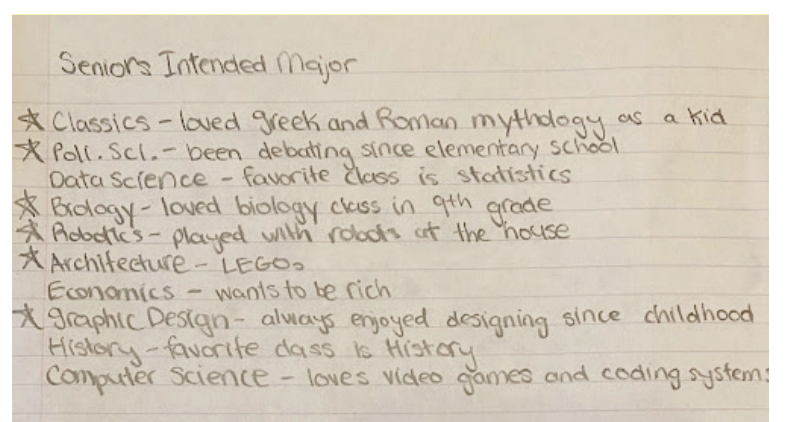 Seniors Intended Major
☆ Classics - loved greek and Roman mythology as a kid
☆ Poli. Sci. - been debating since elementary school
Data Science - favorite class is statistics
☆ Biology - loved biology class in 9th grade
☆ Robotics - played with robots at the house
☆ Architecture - LEGOs
Economics - wants to be rich
☆ graphic Design - always enjoyed designing since childhood
History - favorite class is History
Computer Science - loves video games and coding systems